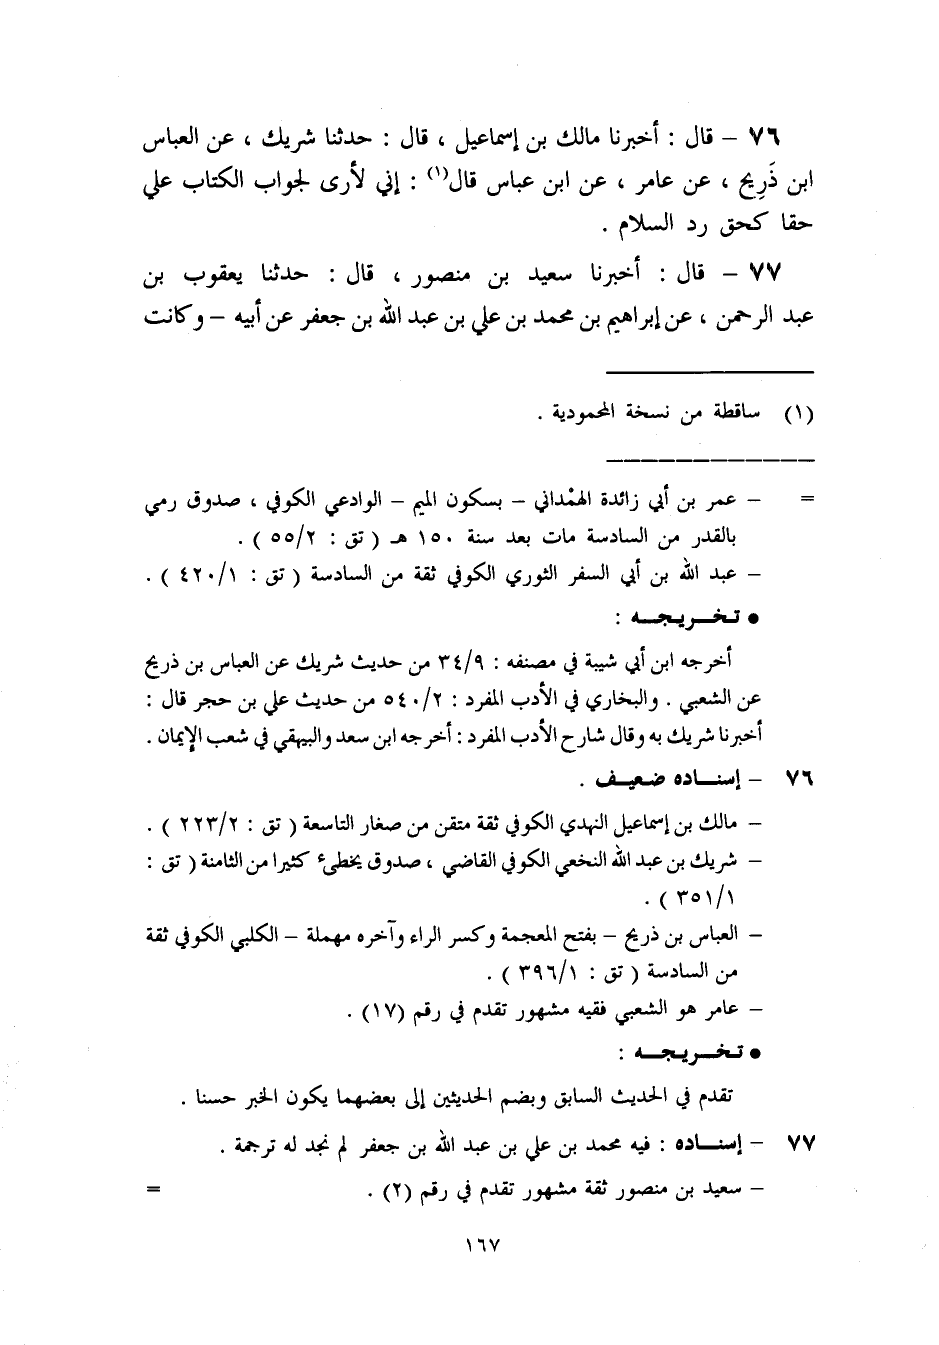 ٧٦ – قال : أخبرنا مالك بن إسماعيل ، قال : حدثنا شريك ، عن العباس
ابن ذَرِيح ، عن عامر ، عن ابن عباس قال(١) : إني لأرى لجواب الكتاب علي
حقا كحق رد السلام .
٧٧ – قال : أخبرنا سعيد بن منصور ، قال : حدثنا يعقوب بن
عبد الرحمن ، عن إبراهيم بن محمد بن علي بن عبد الله بن جعفر عن أبيه – وكانت
(١) ساقطة من نسخة المحمودية .
= – عمر بن أبي زائدة الهمْداني – بسكون الميم – الوادعي الكوفي ، صدوق رمي
بالقدر من السادسة مات بعد سنة ١٥٠ هـ ( تق : ٥٥/٢ ) .
– عبد الله بن أبي السفر الثوري الكوفي ثقة من السادسة ( تق : ٤٢٠/١ ) .
● تـخـــريـجــه :
أخرجه ابن أبي شيبة في مصنفه : ٣٤/٩ من حديث شريك عن العباس بن ذريح
عن الشعبي . والبخاري في الأدب المفرد : ٥٤٠/٢ من حديث علي بن حجر قال :
أخبرنا شريك به وقال شارح الأدب المفرد : أخرجه ابن سعد والبيهقي في شعب الإيمان .
٧٦ – إسنـــاده ضـعـيــف .
– مالك بن إسماعيل النهدي الكوفي ثقة متقن من صغار التاسعة ( تق : ٢٢٣/٢ ) .
– شريك بن عبد الله النخعي الكوفي القاضي ، صدوق يخطىء كثيرا من الثامنة ( تق :
٣٥١/١ ) .
– العباس بن ذريح – بفتح المعجمة وكسر الراء وآخره مهملة – الكلبي الكوفي ثقة
من السادسة ( تق : ٣٩٦/١ ) .
– عامر هو الشعبي فقيه مشهور تقدم في رقم (١٧) .
● تـخـــريـجــه :
تقدم في الحديث السابق وبضم الحديثين إلى بعضهما يكون الخبر حسنا .
٧٧ – إسنـــاده : فيه محمد بن علي بن عبد الله بن جعفر لم نجد له ترجمة .
– سعيد بن منصور ثقة مشهور تقدم في رقم (٢) . =
١٦٧